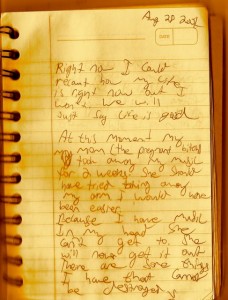 Aug 28
DATE
Right now I could
recant how my life
is right now but I
wont. We will
just say life is good
At this moment my
mom (the pregnant bitch)
took away my music
for 2 weeks. She should
have tried taking away
my arm it would have
been easier.
Because I have music
In my head she
cant get to. She
will never get it out
There are some things
I have that cannot
be destroyed